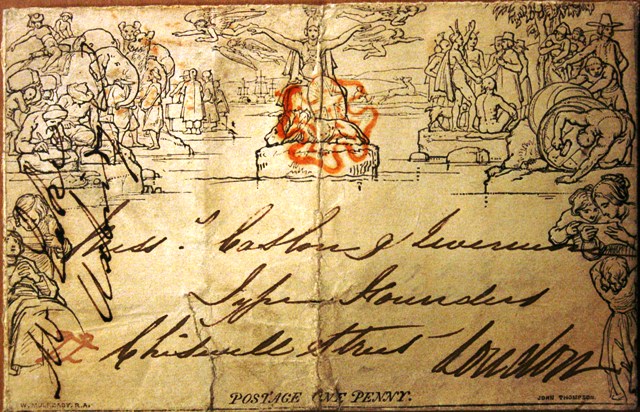 Mess.rs Caslon & Livermore
Type Founders
Chiswell Street London
POSTAGE ONE PENNY.
W. MULREADY, R.A.
JOHN THOMPSON